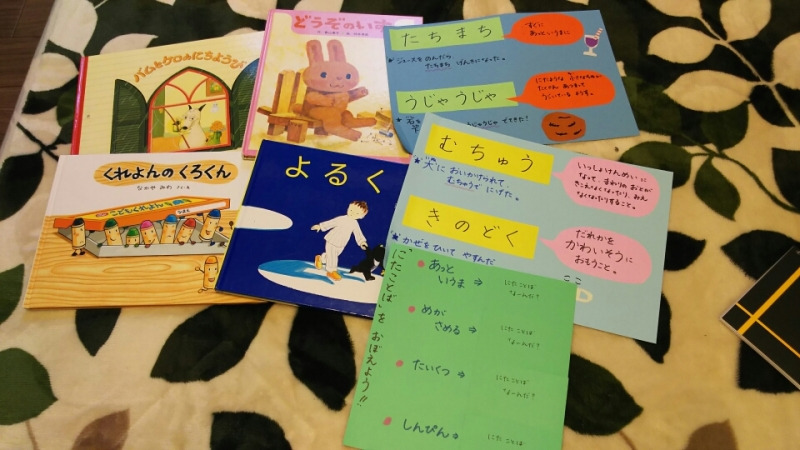 バムとケロのにちようび
どうぞのいす
くれよんのくろくん
なかや みわ さく・え
こどもくれよん
よるく
たちまち
すぐに
あっというまに
★ジュースを のんだら
たちまち げんきになった。
うじゃうじゃ
むちゅう
★犬に おいかけられて、
むちゅうで にげた。
いっしょけんめいに
なって、まわりの おとが
きこえなくなったり、みえ
なくなったりすること。
きのどく
だれかを
かわいそうに
おもうこと。
★かぜをひいて やすんだ
「にたことば」を おぼえよう!!
あっと
いうま ⇒
にた ことば
なーんだ?
めが
さめる ⇒
にた ことば
なーんだ?
たいくつ ⇒
にた ことば
なーんだ?
しんぴん ⇒
にた ことば